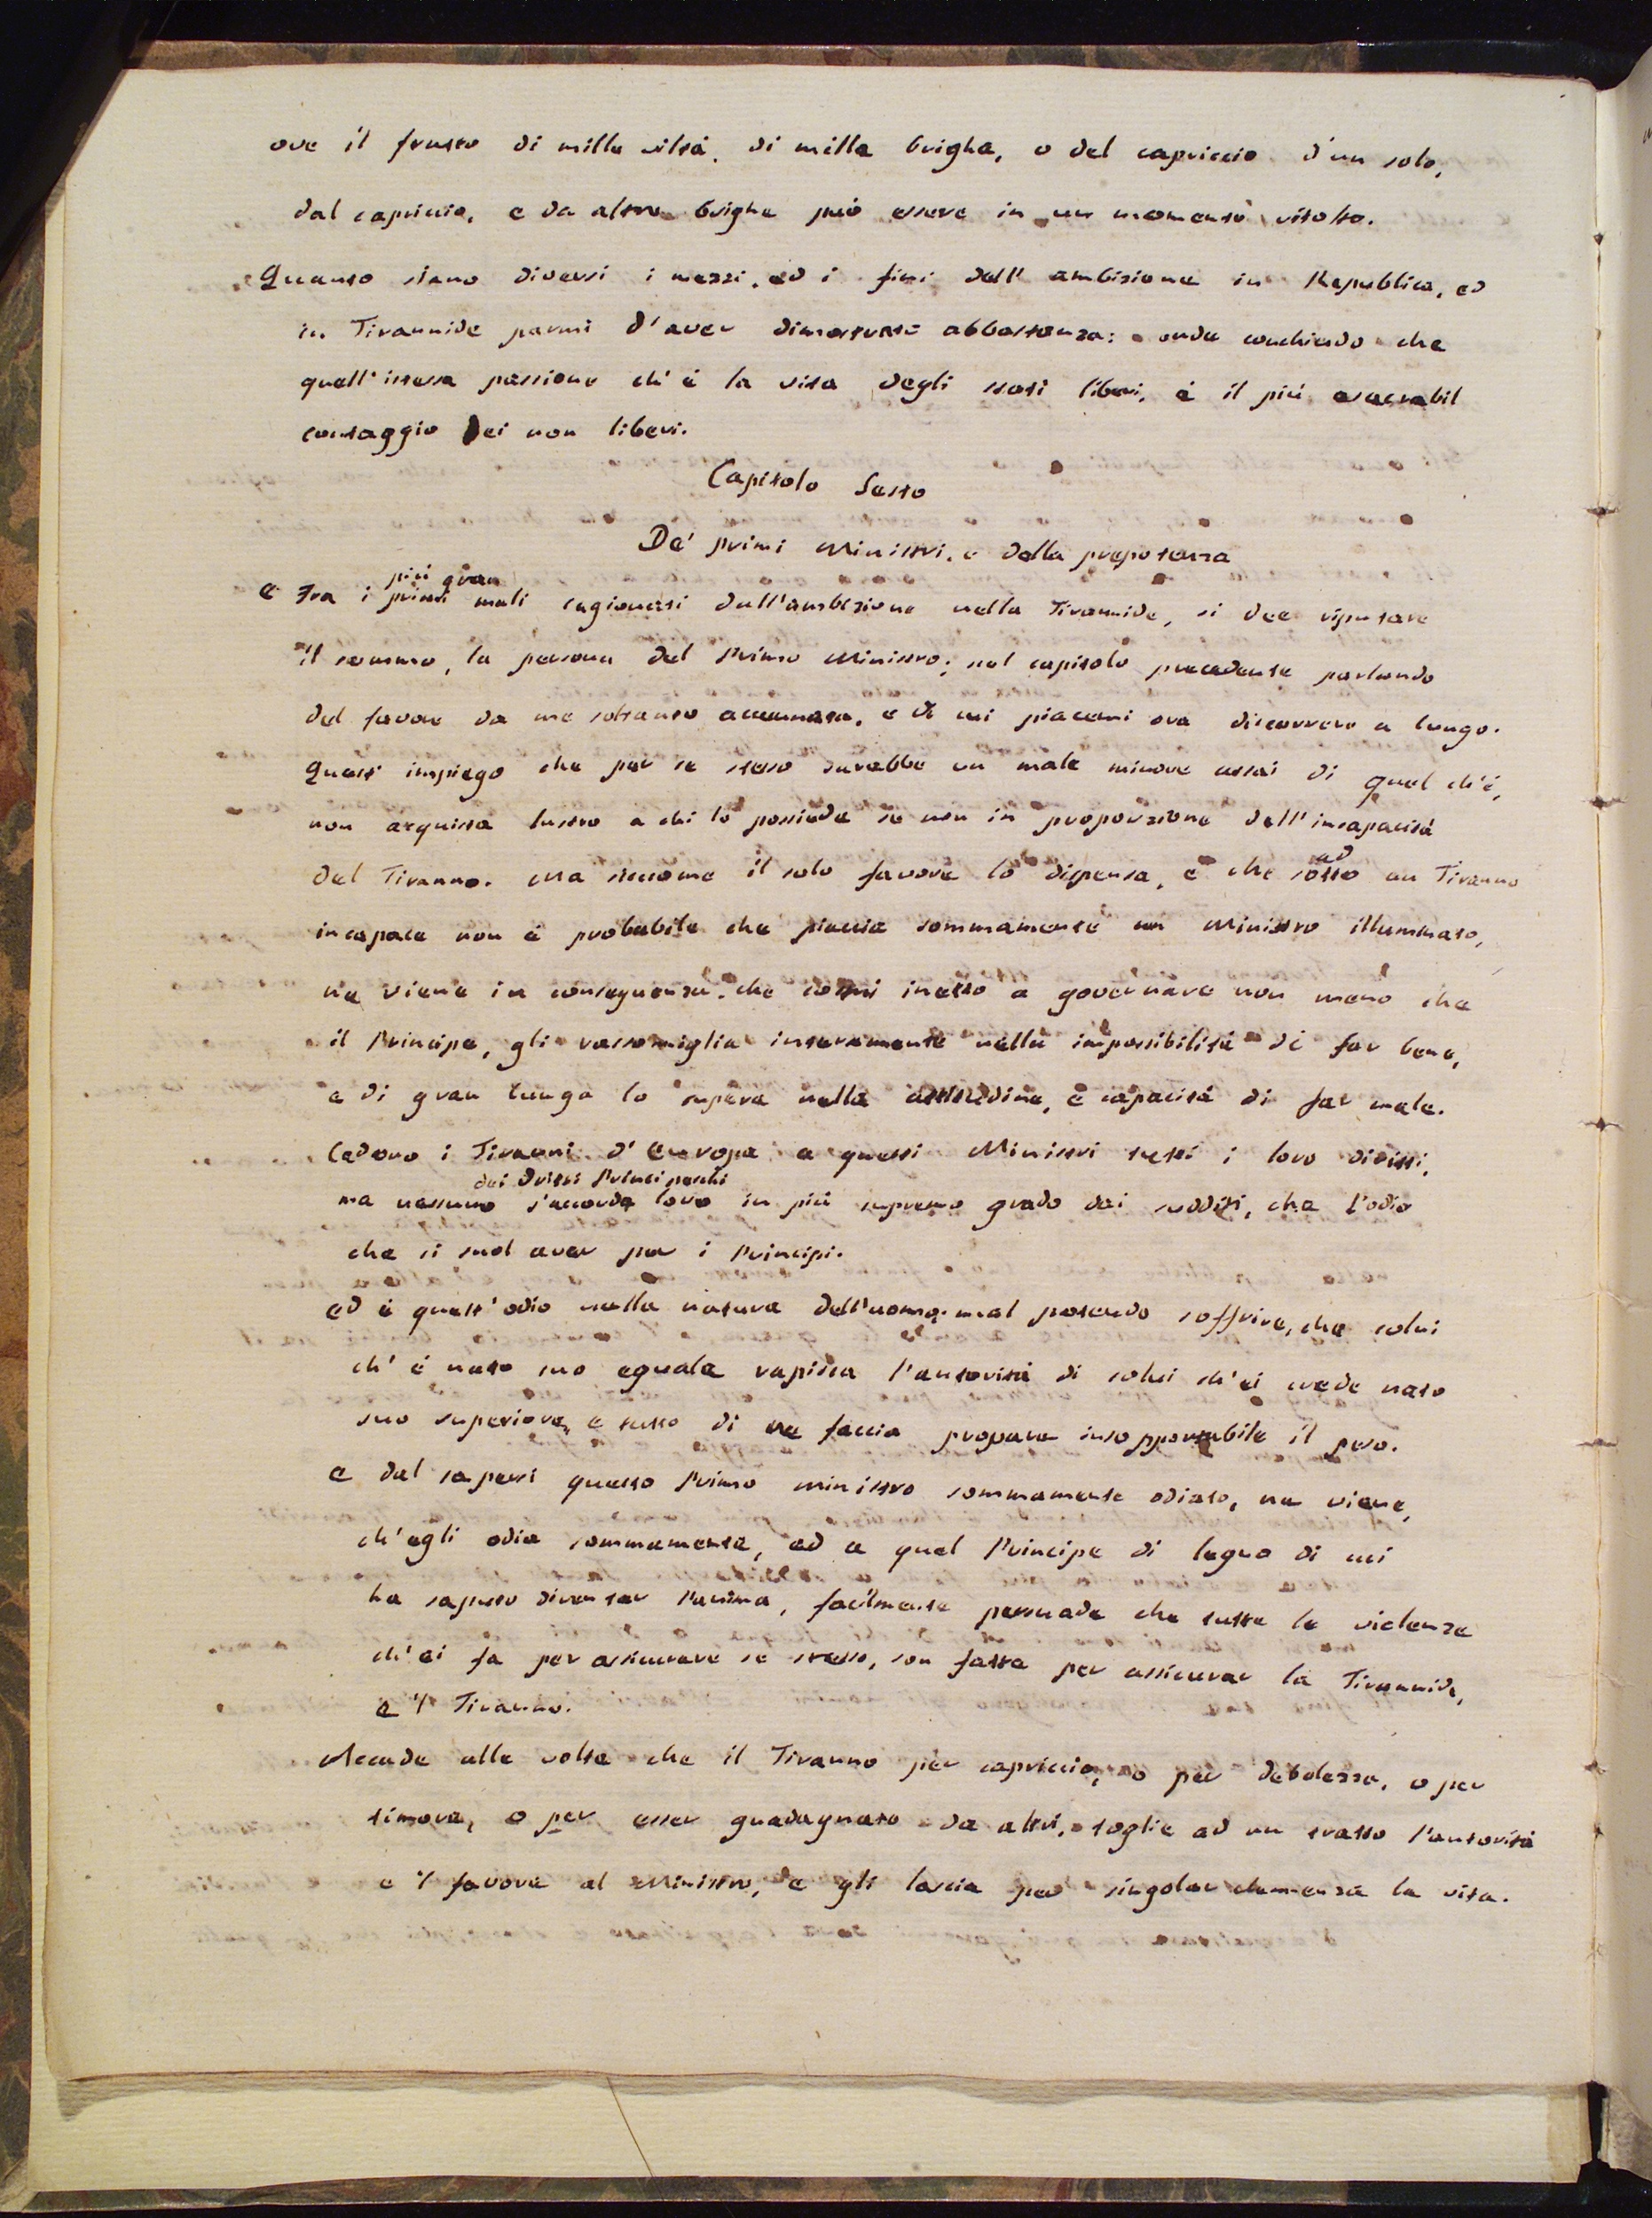 ove il frutto di mille viltà, di mille brighe, o del capriccio d'un solo,
dal capriccio, e da altre brighe può essere in un momento ritolto.
Quanto sieno diversi i mezzi, ed i fini dell'ambizione in Republica, ed
in Tirannide parmi d'aver dimostrato abbastanza: onde conchiudo che
quell'istessa passione ch'è la vita degli stati liberi, è il più esecrabil
contaggio dei non liberi.
Capitolo Sesto
De' primi Ministri, e della prepotenza
più gran
E tra i primi mali cagionati dall'ambizione nella Tirannide, si dee riputare
il sommo, la persona del Primo Ministro; nel capitolo precedente parlando
del favore da me soltanto accennata, e di cui piacemi ora discorrere a lungo.
Quest' impiego che per se stesso sarebbe un male minore assai di quel ch'è,
non acquista lustro a chi lo possiede se non in proporzione dell'incapacità
ad
del Tiranno. Ma siccome il solo favore lo dispensa, e che sotto un Tiranno
incapace non è probabile che piaccia sommamente un Ministro illuminato,
ne viene in conseguenza, che costui inetto a governare non meno che
il Principe, gli rassomiglia interamente nella impossibilità di far bene,
e di gran lunga lo supera nella attitudine, e capacità di far male.
Cedono i Tiranni d'Europa a questi Ministri tutti i loro diritti,
dei dritti Principeschi
ma nessuno s'accorda loro in più supremo grado dai sudditi, che l'odio
che si suol aver per i Principi.
ed è quest'odio nella natura dell'uomo; mal potendo soffrire, che colui
ch'è nato suo eguale rapisca l'autorità di colui ch'ei crede nato
suo superiore, e tutto dì ne faccia provare insopportabile il peso.
e dal sapersi questo Primo ministro sommamente odiato, ne viene,
ch'egli odia sommamente, ed a quel Principe di legno di cui
ha saputo diventar l'anima, facilmente persuade che tutte le violenze
ch'ei fa per assicurare se stesso, son fatte per assicurar la Tirannide,
e 'l Tiranno.
Accade alle volte che il Tiranno per capriccio, o per debolezza, o per
timore, o per esser guadagnato da altri, toglie ad un tratto l'autorità
e 'l favore al Ministro, e gli lascia per singolar clemenza la vita.